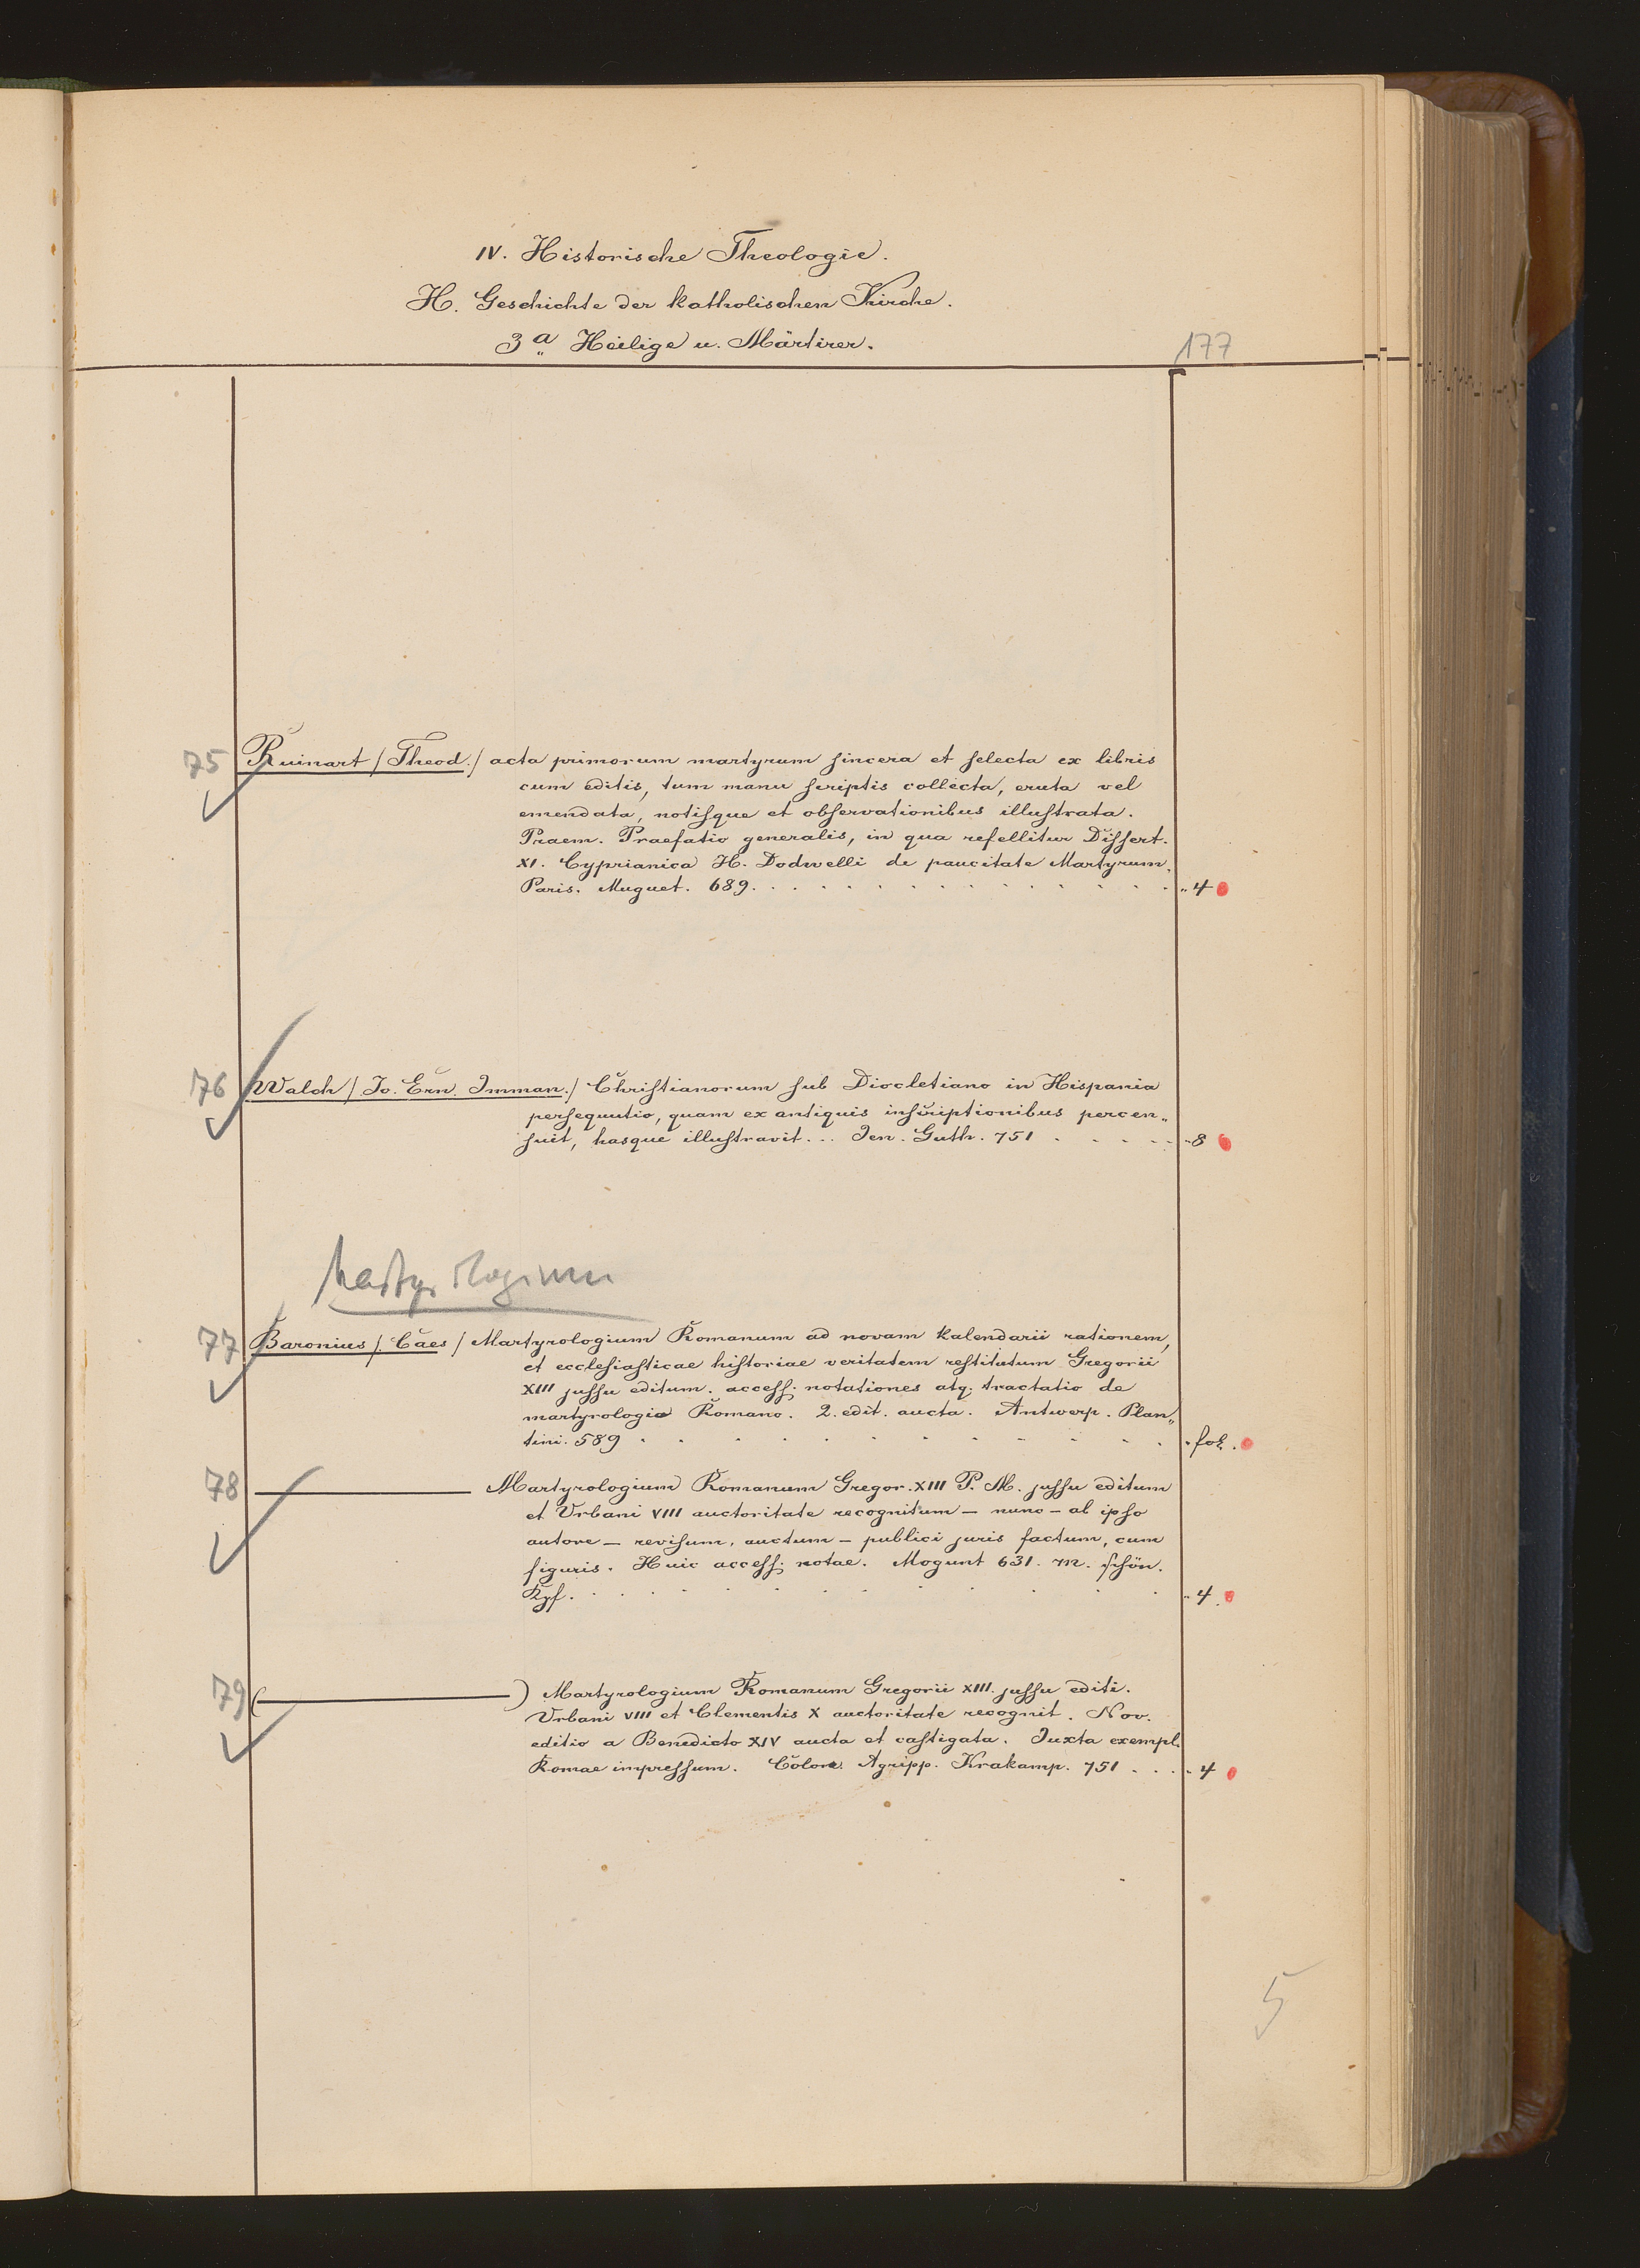 IV. Historische Theologie.
H. Geschichte der katholischen Kirche.
3 a Heilige u. Märtirer.
177
75 Ruinart / Theod. / acta primorum martyrum sincera et selecta ex libris
cum editis, tum manu scriptis collecta, eruta vel
emendata, notisque et observationibus illustrata.
Praem. Praefatio generalis, in qua refellitur Dissert.
XI. Cyprianica H. Dodwelli de paucitate Martyrum.
Paris. Muguet. 689. . . . . . . . . . . . . . . „ 4
76 Walch / Jo. Ern. Imman. / Christianorum sub Diocletiano in Hispania
persequutio, quam ex antiquis inscriptionibus percen„
suit, hasque illustravit... Jen. Guth. 751 . . . . . . 8
Martyrologium
77 Baronius / Caes / Martyrologium Romanum ad novam kalendarii rationem,
et ecclesiasticae historiae veritatem restitutum Gregorii
XIII jussu editum. access. notationes atq. tractatio de
martyrologio Romano. 2. edit. aucta. Antwerp. Plan„
tini. 589 . . . . . . . . . . . . fol.
78 ——— Martyrologium Romanum Gregor. XIII P. M. jussu editum
et Urbani VIII auctoritate recognitum — nunc — ab ipso
autore — revisum, auctum — publici juris factum, cum
figuris. Huic access. notae. Mogunt 631. m. schön.
Kpf. . . . . . . . . . . . . „ 4.
79 (———) Martyrologium Romanum Gregorii XIII. jussu editi.
Urbani VIII et Clementis X auctoritate recognit. Nov.
editio a Benedicto XIV aucta et castigata. Juxta exempl.
Romae impressum. Colon. Agripp. Krakamp. 751 . . . . 4
5